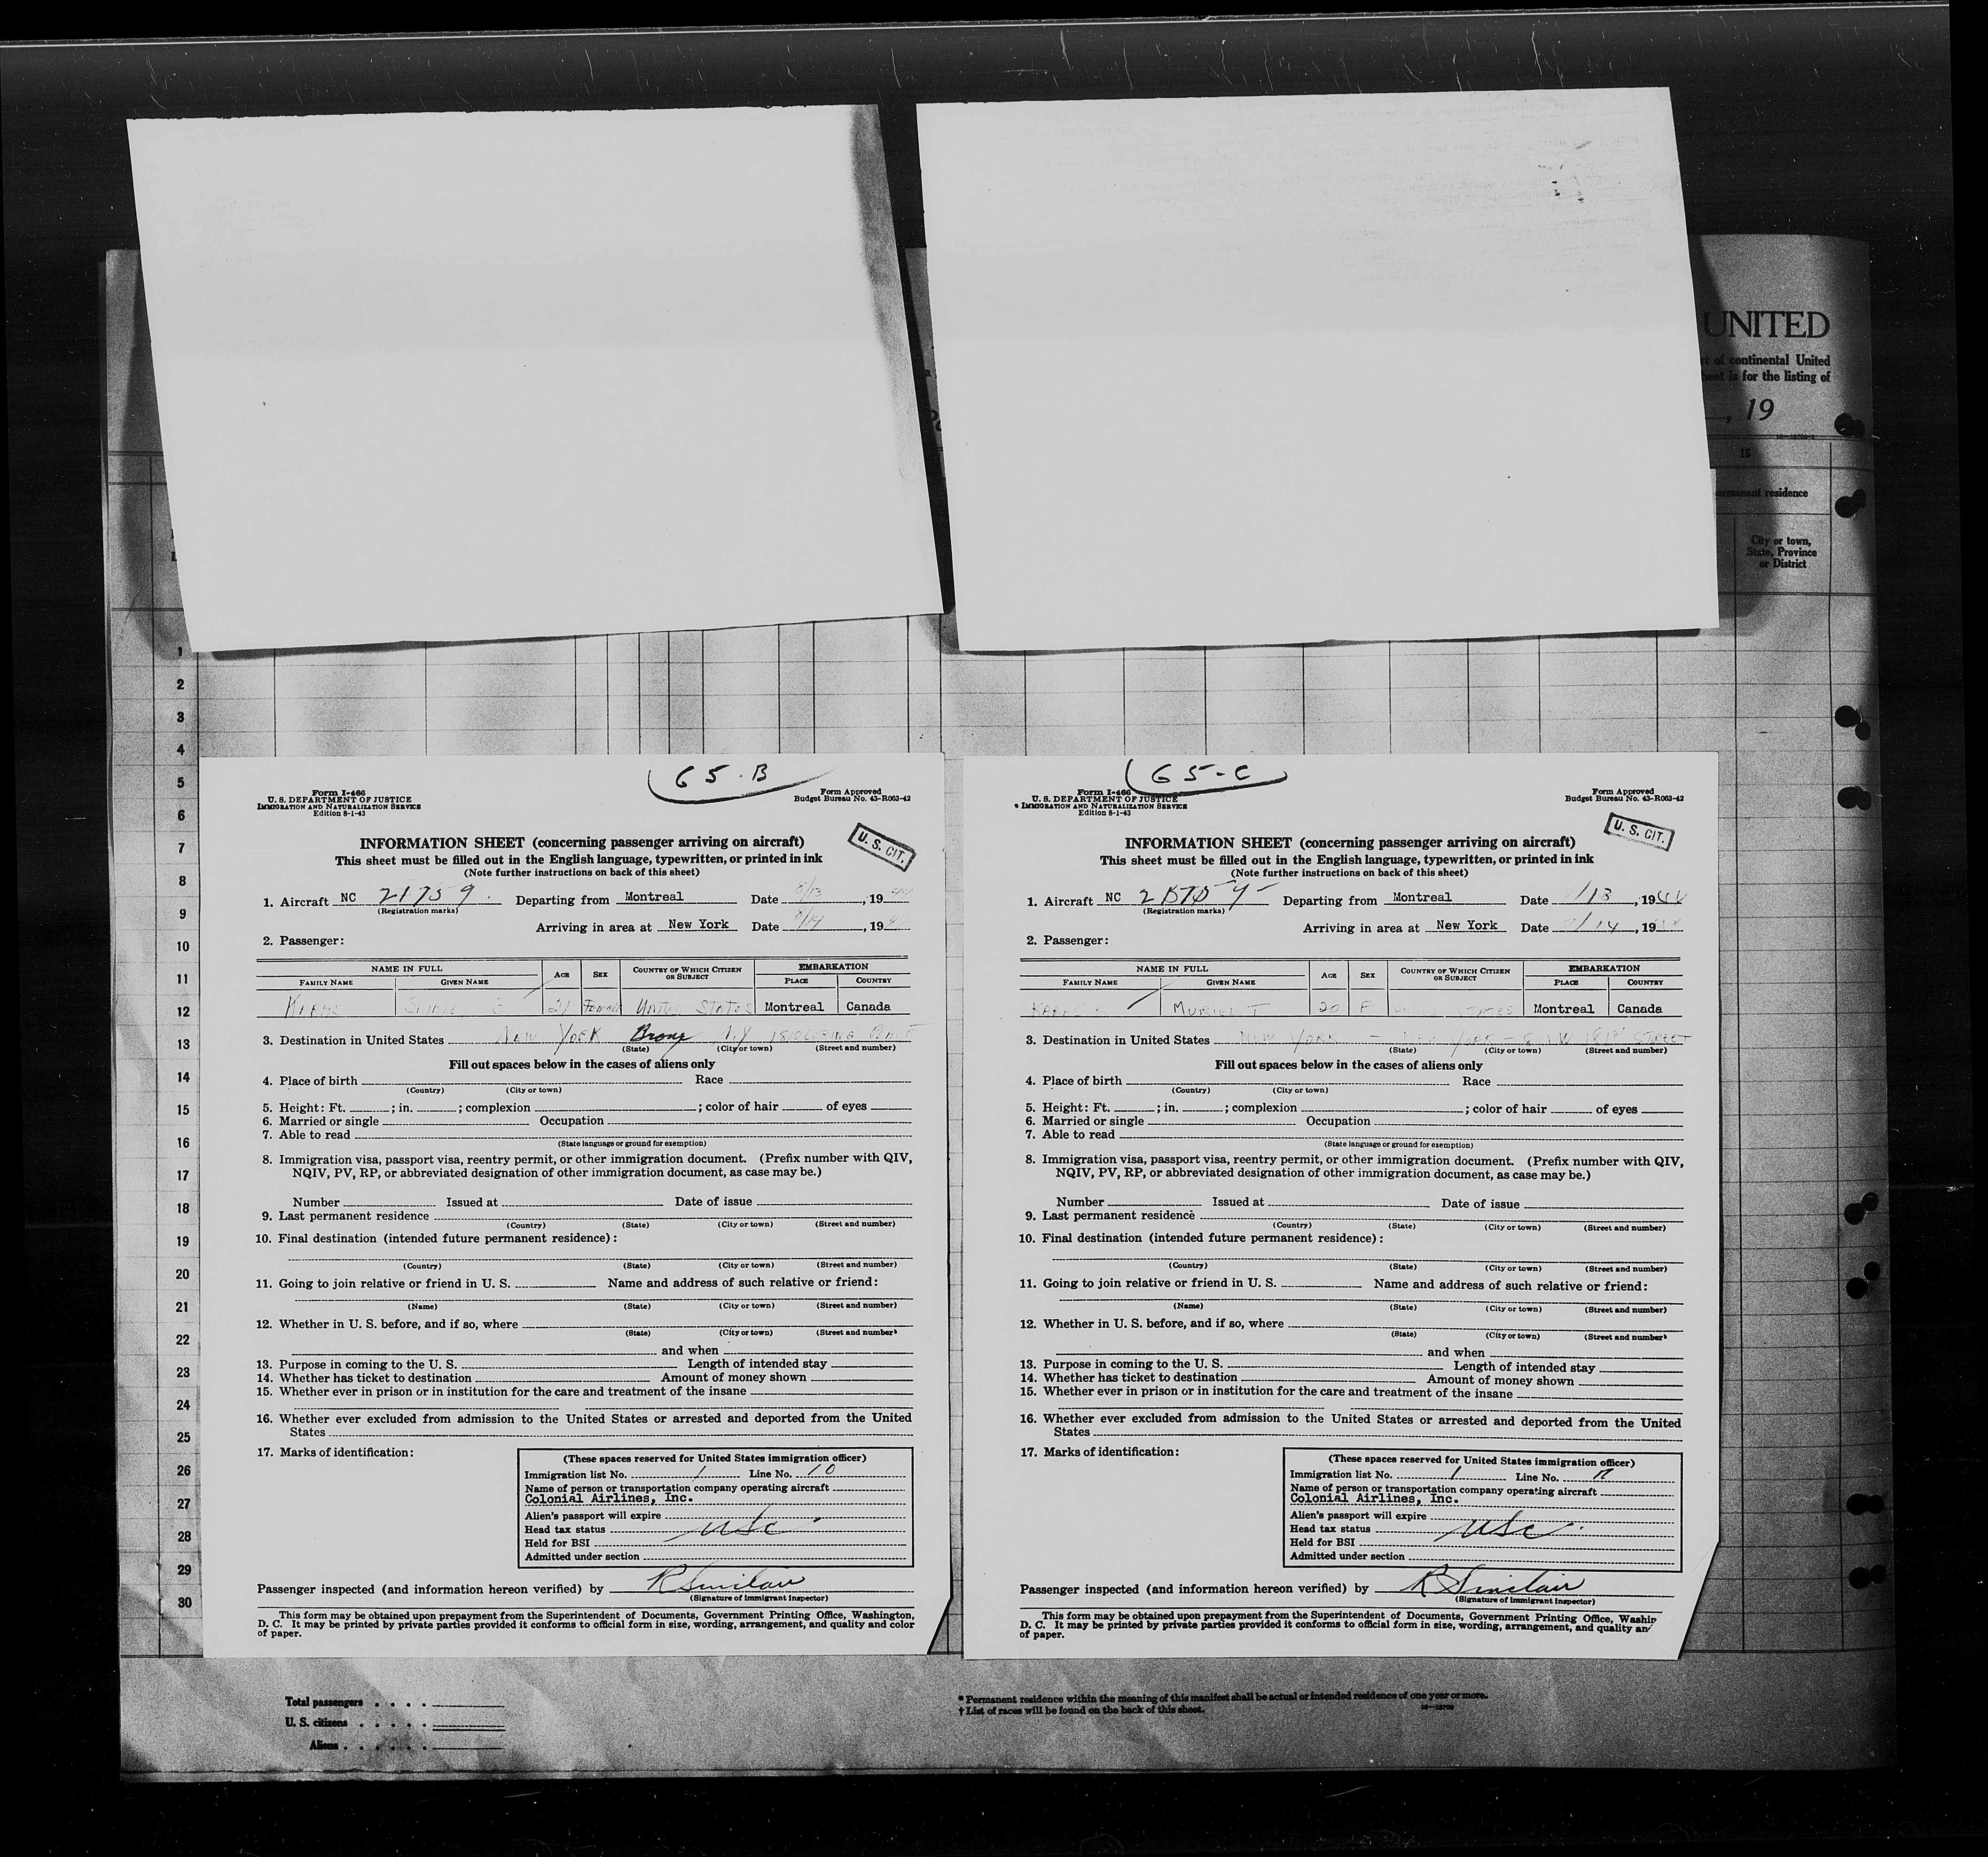 UNITED
of continental United
is for the listing of
, 19
15
residence
City or town,
State, Province
or District
1
2
3
4
5
6
7
8
9
10
11
12
13
14
15
16
17
18
19
20
21
22
23
24
25
26
27
28
29
30
65-B
Form I-466
U. S. DEPARTMENT OF JUSTICE
IMMIGRATION AND NATURALIZATION SERVICE
Edition 8-1-43
Form Approved
Budget Bureau No. 43-R063-42
U. S. CIT.
INFORMATION SHEET (concerning passenger arriving on aircraft)
This sheet must be filled out in the English language, typewritten, or printed in ink
(Note further instructions on back of this sheet)
1. Aircraft NC 21759. Departing from Montreal Date , 19
(Registration marks)
Arriving in area at New York Date , 19
2. Passenger:
NAME IN FULL AGE SEX COUNTRY OF WHICH CITIZEN OR SUBJECT EMBARKATION
FAMILY NAME GIVEN NAME PLACE COUNTRY
21 Female United States Montreal Canada
3. Destination in United States New York Bronx N.Y
(State) (City or town) (Street and number)
Fill out spaces below in the cases of aliens only
4. Place of birth Race
(Country) (City or town)
5. Height: Ft. ; in. ; complexion ; color of hair of eyes
6. Married or single Occupation
7. Able to read
(State language or ground for exemption)
8. Immigration visa, passport visa, reentry permit, or other immigration document. (Prefix number with QIV,
NQIV, PV, RP, or abbreviated designation of other immigration document, as case may be.)
Number Issued at Date of issue
9. Last permanent residence
(Country) (State) (City or town) (Street and number)
10. Final destination (intended future permanent residence):
(Country) (State) (City or town) (Street and number)
11. Going to join relative or friend in U. S. Name and address of such relative or friend:
(Name) (State) (City or town) (Street and number)
12. Whether in U. S. before, and if so, where
(State) (City or town) (Street and number)
and when
13. Purpose in coming to the U. S. Length of intended stay
14. Whether has ticket to destination Amount of money shown
15. Whether ever in prison or in institution for the care and treatment of the insane
16. Whether ever excluded from admission to the United States or arrested and deported from the United
States
17. Marks of identification:
(These spaces reserved for United States immigration officer)
Immigration list No. 1 Line No. 10
Name of person or transportation company operating aircraft
Colonial Airlines, Inc.
Alien's passport will expire
Head tax status USC
Held for BSI
Admitted under section
Passenger inspected (and information hereon verified) by R Sinclair
(Signature of immigrant inspector)
This form may be obtained upon prepayment from the Superintendent of Documents, Government Printing Office, Washington,
D. C. It may be printed by private parties provided it conforms to official form in size, wording, arrangement, and quality and color
of paper.
65-C
Form I-466
U. S. DEPARTMENT OF JUSTICE
IMMIGRATION AND NATURALIZATION SERVICE
Edition 8-1-43
Form Approved
Budget Bureau No. 43-R063-42
U. S. CIT.
INFORMATION SHEET (concerning passenger arriving on aircraft)
This sheet must be filled out in the English language, typewritten, or printed in ink
(Note further instructions on back of this sheet)
1. Aircraft NC Departing from Montreal Date /13, 1944
(Registration marks)
Arriving in area at New York Date /14, 19
2. Passenger:
NAME IN FULL AGE SEX COUNTRY OF WHICH CITIZEN OR SUBJECT EMBARKATION
FAMILY NAME GIVEN NAME PLACE COUNTRY
Muriel T 20 F STATES Montreal Canada
3. Destination in United States New York STREET
(State) (City or town) (Street and number)
Fill out spaces below in the cases of aliens only
4. Place of birth Race
(Country) (City or town)
5. Height: Ft. ; in. ; complexion ; color of hair of eyes
6. Married or single Occupation
7. Able to read
(State language or ground for exemption)
8. Immigration visa, passport visa, reentry permit, or other immigration document. (Prefix number with QIV,
NQIV, PV, RP, or abbreviated designation of other immigration document, as case may be.)
Number Issued at Date of issue
9. Last permanent residence
(Country) (State) (City or town) (Street and number)
10. Final destination (intended future permanent residence):
(Country) (State) (City or town) (Street and number)
11. Going to join relative or friend in U. S. Name and address of such relative or friend:
(Name) (State) (City or town) (Street and number)
12. Whether in U. S. before, and if so, where
(State) (City or town) (Street and number)
and when
13. Purpose in coming to the U. S. Length of intended stay
14. Whether has ticket to destination Amount of money shown
15. Whether ever in prison or in institution for the care and treatment of the insane
16. Whether ever excluded from admission to the United States or arrested and deported from the United
States
17. Marks of identification:
(These spaces reserved for United States immigration officer)
Immigration list No. 1 Line No.
Name of person or transportation company operating aircraft
Colonial Airlines, Inc.
Alien's passport will expire
Head tax status USC
Held for BSI
Admitted under section
Passenger inspected (and information hereon verified) by R Sinclair
(Signature of immigrant inspector)
This form may be obtained upon prepayment from the Superintendent of Documents, Government Printing Office,
D. C. It may be printed by private parties provided it conforms to official form in size, wording, arrangement, and quality
of paper.
Total passengers
U. S. citizens
Aliens
* Permanent residence within the meaning of this manifest shall be actual or intended residence of one year or more.
† List of races will be found on the back of this sheet.